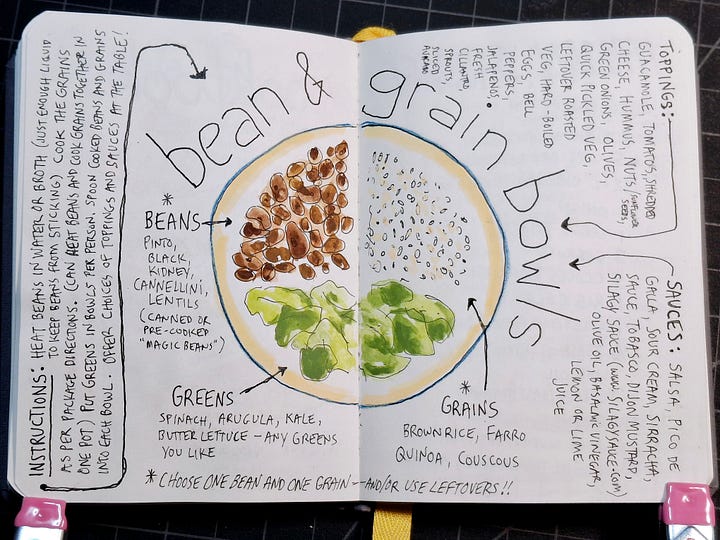 bean & grain bowls
INSTRUCTIONS: HEAT BEANS IN WATER OR BROTH (JUST ENOUGH LIQUID
TO KEEP BEANS FROM STICKING) COOK THE GRAINS
AS PER PACKAGE DIRECTIONS. (CAN HEAT BEANS AND COOK GRAINS TOGETHER IN
ONE POT) PUT GREENS IN BOWLS PER PERSON. SPOON COOKED BEANS AND GRAINS
INTO EACH BOWL. OFFER CHOICES OF TOPPINGS AND SAUCES AT THE TABLE!
*
BEANS
PINTO,
BLACK,
KIDNEY,
CANNELLINI,
LENTILS
(CANNED OR
PRE-COOKED
"MAGIC BEANS")
GREENS
SPINACH, ARUGULA, KALE,
BUTTER LETTUCE - ANY GREENS
YOU LIKE
*
GRAINS
BROWN RICE, FARRO
QUINOA, COUSCOUS
* CHOOSE ONE BEAN AND ONE GRAIN - AND/OR USE LEFTOVERS!!
TOPPINGS:
GUACAMOLE, TOMATOS, SHREDDED
CHEESE, HUMMUS, NUTS/SUNFLOWER SEEDS,
GREEN ONIONS, OLIVES,
QUICK PICKLED VEG,
LEFTOVER ROASTED
VEG, HARD-BOILED
EGGS, BELL
PEPPERS,
JALAPENOS,
FRESH
CILLANTRO,
SPROUTS,
SLICED
AVACADO
SAUCES: SALSA, PICO DE
GALLA, SOUR CREAM, SIRRACHA,
SAUCE, TOBASCO, DIJON MUSTARD,
SILAGY SAUCE (WWW.SILAGYSAUCE.COM)
OLIVE OIL, BASALMIC VINEGAR,
LEMON OR LIME
JUICE